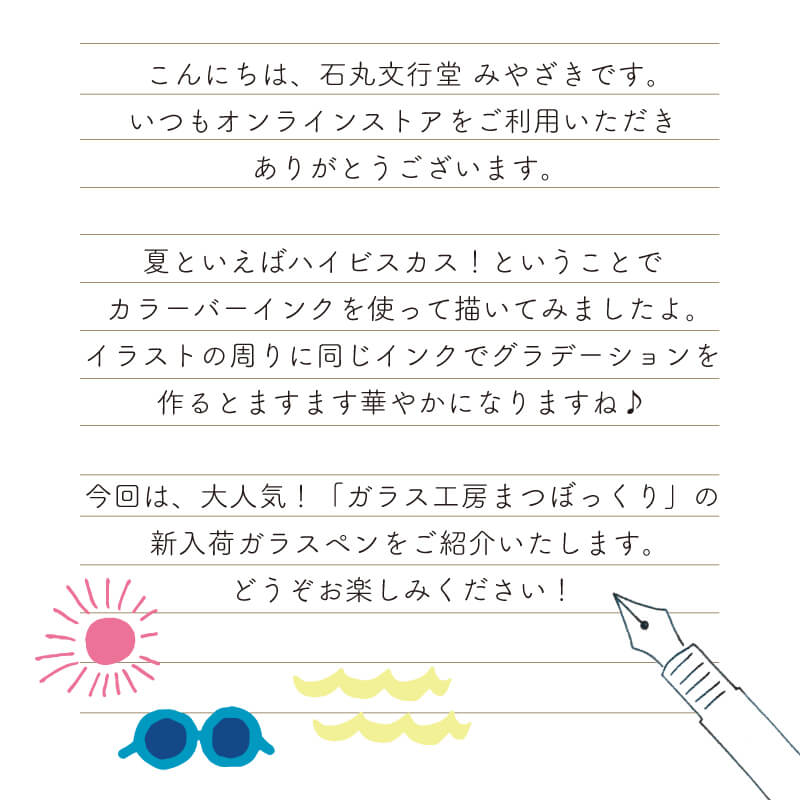 こんにちは、石丸文行堂 みやざきです。
いつもオンラインストアをご利用いただき
ありがとうございます。
夏といえばハイビスカス！ということで
カラーバーインクを使って描いてみましたよ。
イラストの周りに同じインクでグラデーションを
作るとますます華やかになりますね♪
今回は、大人気！「ガラス工房まつぼっくり」の
新入荷ガラスペンをご紹介いたします。
どうぞお楽しみください！